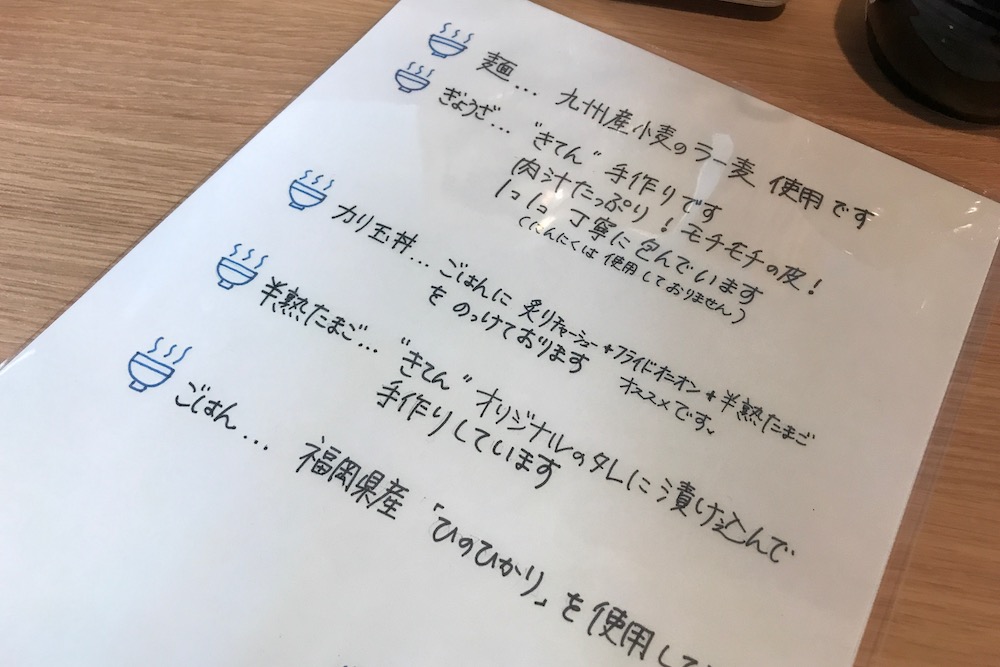 麺… 九州産小麦のラー麦 使用です
ぎょうざ… "きてん" 手作りです
肉汁たっぷり！モチモチの皮！
1コ1コ 丁寧に包んでいます
(にんにくは使用しておりません)
カリ玉丼… ごはんに 炙りチャーシュー+フライドオニオン+半熟たまご
を のっけております オススメです。
半熟たまご… "きてん" オリジナルのタレに漬け込んで
手作りしています
ごはん… 福岡県産「ひのひかり」を使用して